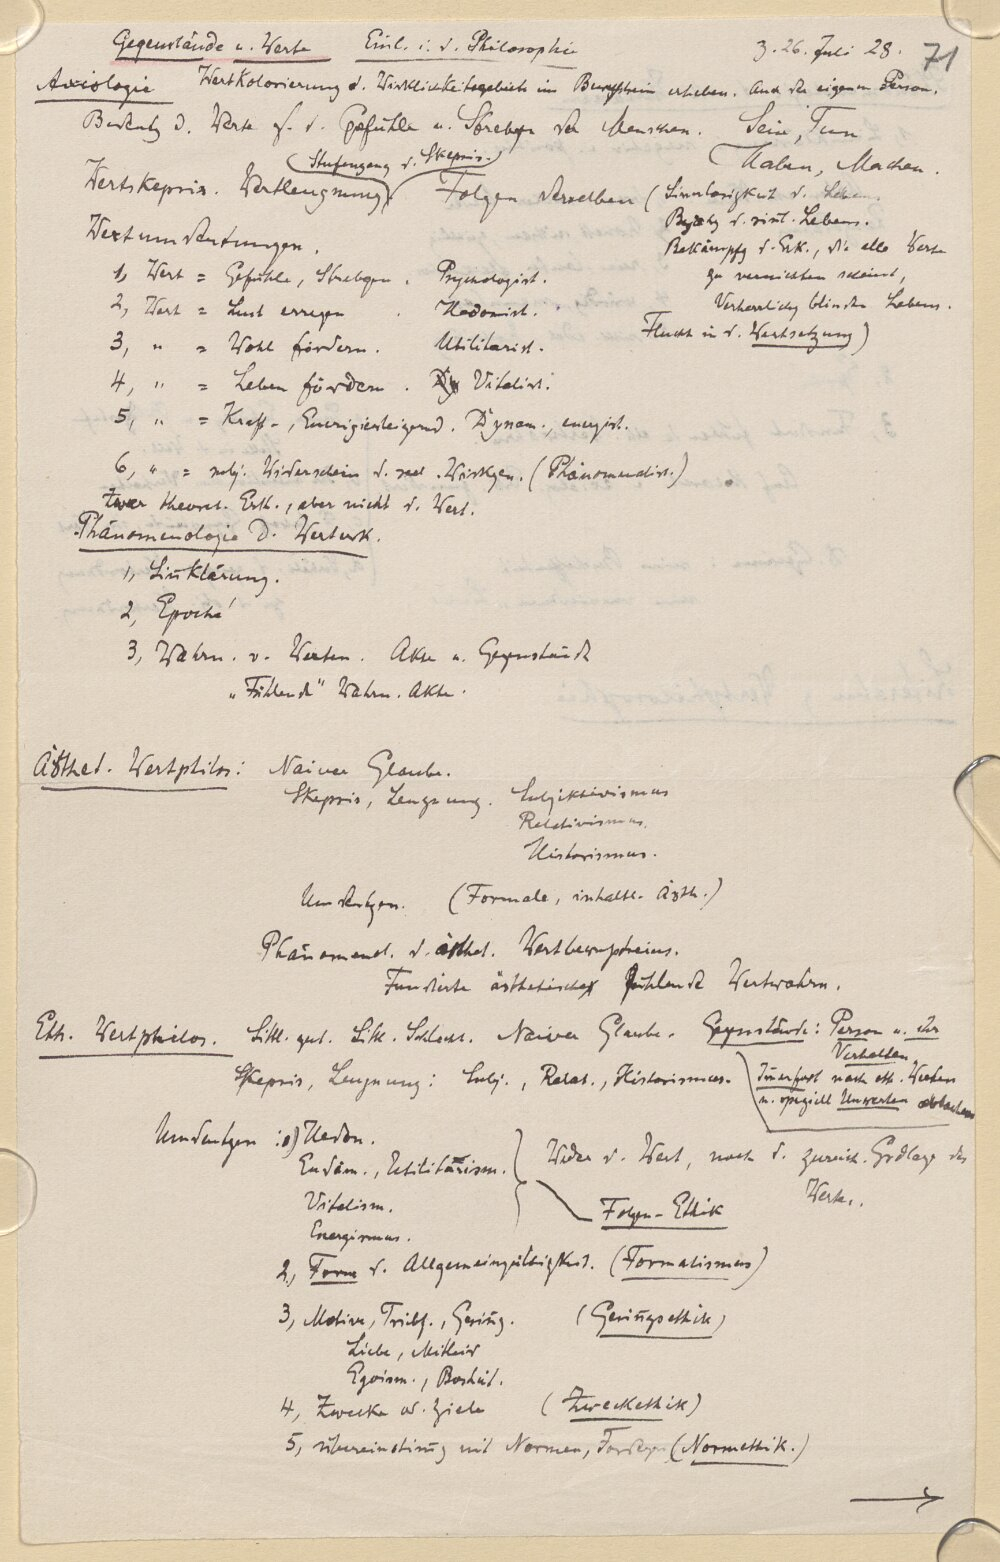 Gegenstände u. Werte Einl. i. d. Philosophie z. 26. Juli 28. 71
Axiologie Wertkolorierung d. Wirklichkeitsgebiete im Bewßtsein erheben. Auch der eigenen Person.
Bedeutg d. Werte f. d. Gefühle u. Strebgn der Menschen. Sein, Tun
Haben, Machen.
(Stufengang d. Skepsis.)
Wertskepsis. Wertleugnung Folgen derselben (Sinnlosigkeit d. Lebens.
d. Lebens.
Bekämpfg d. Erk., die alle Werte
zu vernichten scheint,
Verherrlichg blinden Lebens.
Flucht in d. Wertsetzung)
Wertumdeutungen.
1, Wert = Gefühle, Strebgen. Psychologist.
2, Wert = Lust erregen. Hedonist.
3, " = Wohl fördern. Utilitarist.
4, " = Leben fördern. Vitalist.
5, " = Kraft-, Energiesteigernd. Dynam., energist.
6, " = subj. Widerschein d. Wirkgen. (Phänomenalist.)
Zwar theoret. Erk., aber nicht d. Wert.
Phänomenologie d. Werterk.
1, Sinnklärung.
2, Epoché
3, Wahrn. v. Werten. Akte u. Gegenstände
"Fühlende" Wahrn. Akte.
Ästhet. Wertphilos: Naiver Glaube.
Skepsis, Leugnung. Subjektivismus
Relativismus.
Historismus.
Umdeutgen. (Formale, inhaltl. Ästh.)
Phänomenol. d. ästhet. Wertbewußtseins.
Fundierte ästhetische fühlende Wertwahrn.
Eth. Wertphilos. Sittl. gut. Sittl. Schlecht. Naiver Glaube. Gegenstände: Person u. ihr
Verhalten
Skepsis, Leugnung: Subj., Relat., Historismus. nach eth. Werten
u. speziell Unwerten
Umdeutgen: 1) Hedon.
Eudäm., Utilitarism. Weder d. Wert, noch d. zureich. Grdlage des
Wertes.
Vitalism. Folgen-Ethik
Energismus.
2, Form d. Allgemeingültigkeit. (Formalismus)
3, Motive, Triebf., Gesing. (Gesingsethik)
Liebe, Mitleid
Egoism., Bosheit.
4, Zwecke od. Ziele (Zweckethik)
5, Übereinstimg mit Normen, Fordrgn (Normethik.)